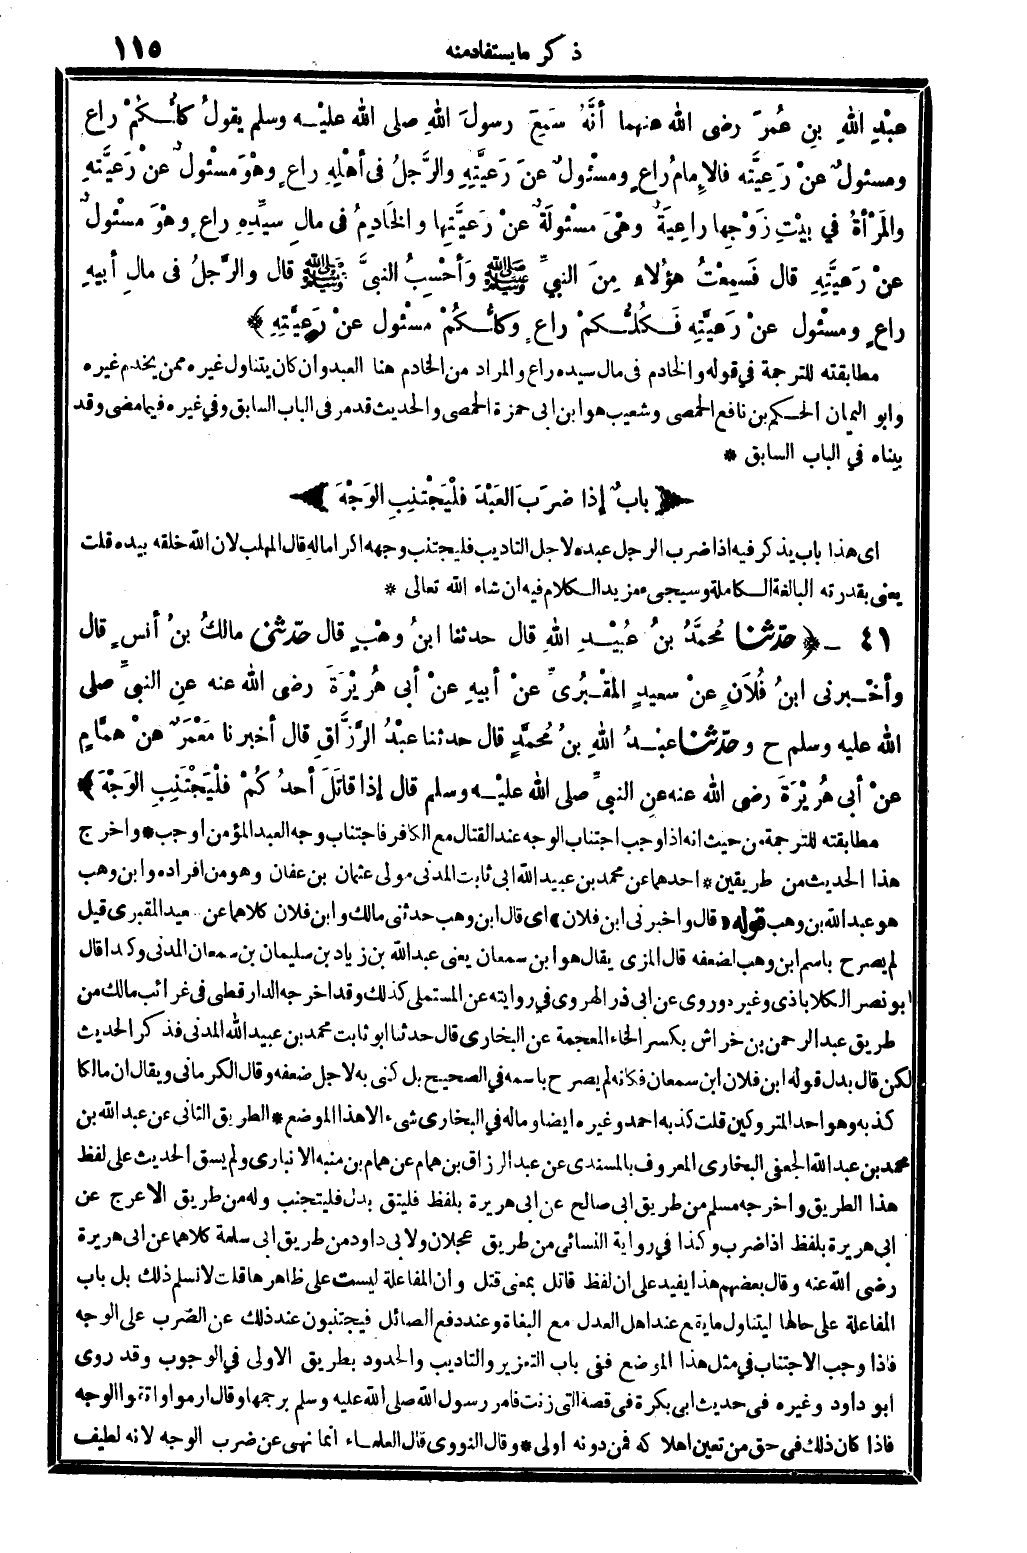 ذكر مايستفاد منه
١١٥
عبْدِ اللهِ بنِ عُمرَ رضى الله عنهما أنَّهُ سَمِعَ رسولَ اللهِ صلى الله عليْه وسلم يقولُ كلُّكُمْ راعٍ
ومسئولٌ عنْ رَعِيتَّه فالإِمامُ راعٍ ومسْئولٌ عنْ رَعيَّتِهِ والرَّجلُ فى أهْلِهِ راعٍ وهْوَ مسْئولٌ عنْ رَعيَّتهِ
والمَرْأةُ في بيْتِ زَوْجِها راعِيَةٌ وهْىَ مسْئولَةٌ عنْ رَعيَّتِها والخَادِمُ فى مالِ سيِّدِهِ راعٍ وهْوَ مسْئولٌ
عنْ رَعيَّتِهِ قال فَسمِعْتُ هؤُلاءِ مِنَ النبيِّ ﷺ وَأحْسِبُ النبيَّ ﷺ قال والرَّجلُ فى مالِ أبيهِ
راعٍ ومسْئولٌ عنْ رَعيَّتِه فَكلُّكمْ راعٍ وكلُّكُمْ مسْئول عنْ رَعِيَّتِهِ ﴾
مطابقته للترجمة في قوله والخادم فى مال سيده راع والمراد من الخادم هنا العبد وان كان يتناول غيره ممن يخدم غيره
وابو اليمان الحكم بن نافع الحمصى وشعيب هو ابن ابى حمزة الحمصى والحديث قد مر فى الباب السابق وفي غيره فيما مضى وقد
بيناه في الباب السابق *
﴿ بابٌ إذا ضرَبَ العَبْدَ فلْيَجْتنِبِ الوَجْهَ ﴾
اى هذا باب يذكر فيه اذا ضرب الرجل عبده لاجل التاديب فليجتنب وجهه اكراما له قال المهلب لان الله خلقه بيده قلت
يعنى بقدرته البالغة الكاملة وسيجىء مزيد الكلام فيه ان شاء الله تعالى *
٤١ ـ ﴿ حدّثنا مُحمَّدُ بنُ عُبيْدِ اللهِ قال حدثنا ابنُ وهْبٍ قال حدّثنى مالكُ بنُ أنسٍ قال
وأخْبرنى ابنُ فُلاَنٍ عنْ سعيدٍ المَقْبُرىِّ عنْ أبيهِ عنْ أبى هُريْرَةَ رضى الله عنه عنِ النبيِّ صلى
الله عليه وسلم ح وحدّثنا عبْدُ اللهِ بنُ مُحمَّدٍ قال حدثنا عبْدُ الرَّزَّاقِ قال أخبرنا مَعْمَرٌ عنْ همَّامٍ
عنْ أبى هُريْرَةَ رضى الله عنه عنِ النبيِّ صلى الله عليْه وسلم قال إذا قاتَلَ أحدُكُمْ فلْيَجْتَنِبِ الوَجْهَ ﴾
مطابقته للترجمة من حيث انه اذا وجب اجتناب الوجه عند القتال مع الكافر فاجتناب وجه العبد المؤمن اوجب * واخرج
هذا الحديث من طريقين * احدهما عن محمد بن عبيد الله ابى ثابت المدنى مولى عثمان بن عفان وهو من افراده وابن وهب
هو عبد الله بن وهب قوله « قال واخبرنى ابن فلان » اى قال ابن وهب حدثنى مالك وابن فلان كلاهما عن سعيد المقبرى قيل
لم يصرح باسم ابن وهب لضعفه قال المزى يقال هو ابن سمعان يعنى عبد الله بن زياد بن سليمان بن سمعان المدنى وكذا قال
ابو نصر الكلاباذى وغيره وروى عن ابى ذر الهروى في روايته عن المستملى كذلك وقد اخرجه الدارقطى فى غرائب مالك من
طريق عبد الرحمن بن خراش بكسر الخاء المعجمة عن البخارى قال حدثنا ابو ثابت محمد بن عبيد الله المدنى فذكر الحديث
لكن قال بدل قوله ابن فلان ابن سمعان فكانه لم يصرح باسمه في الصحيح بل كنى به لاجل ضعفه وقال الكرمانى ويقال ان مالكا
كذبه وهو احد المتروكين قلت كذبه احمد وغيره ايضا وماله في البخارى شىء الا هذا الموضع * الطريق الثانى عن عبد الله بن
محمد بن عبد الله الجعفى البخارى المعروف بالمسندى عن عبد الرزاق بن همام عن همام بن منبه الانبارى ولم يسق الحديث على لفظ
هذا الطريق واخرجه مسلم من طريق ابى صالح عن ابى هريرة بلفظ فليتق بدل فليتجنب وله من طريق الاعرج عن
ابى هريرة بلفظ اذا ضرب وكذا في رواية النسائى من طريق عجلان ولابى داود من طريق ابى سلمة كلاهما عن ابى هريرة
رضى الله عنه وقال بعضهم هذا يفيد على ان لفظ قاتل بمعنى قتل وان المفاعلة ليست على ظاهرها قلت لا نسلم ذلك بل باب
المفاعلة على حالها ليتناول ما يقع عند اهل العدل مع البغاة وعند دفع الصائل فيجتنبون عند ذلك عن الضرب على الوجه
فاذا وجب الاجتناب في مثل هذا الموضع ففى باب التعزير والتاديب والحدود بطريق الاولى في الوجوب وقد روى
ابو داود وغيره فى حديث ابى بكرة فى قصة التى زنت فامر رسول الله صلى الله عليه وسلم برجمها وقال ارموا واتقوا الوجه
فاذا كان ذلك فى حق من تعين اهلاكه فمن دونه اولى * وقال النووى قال العلماء انما نهى عن ضرب الوجه لانه لطيف